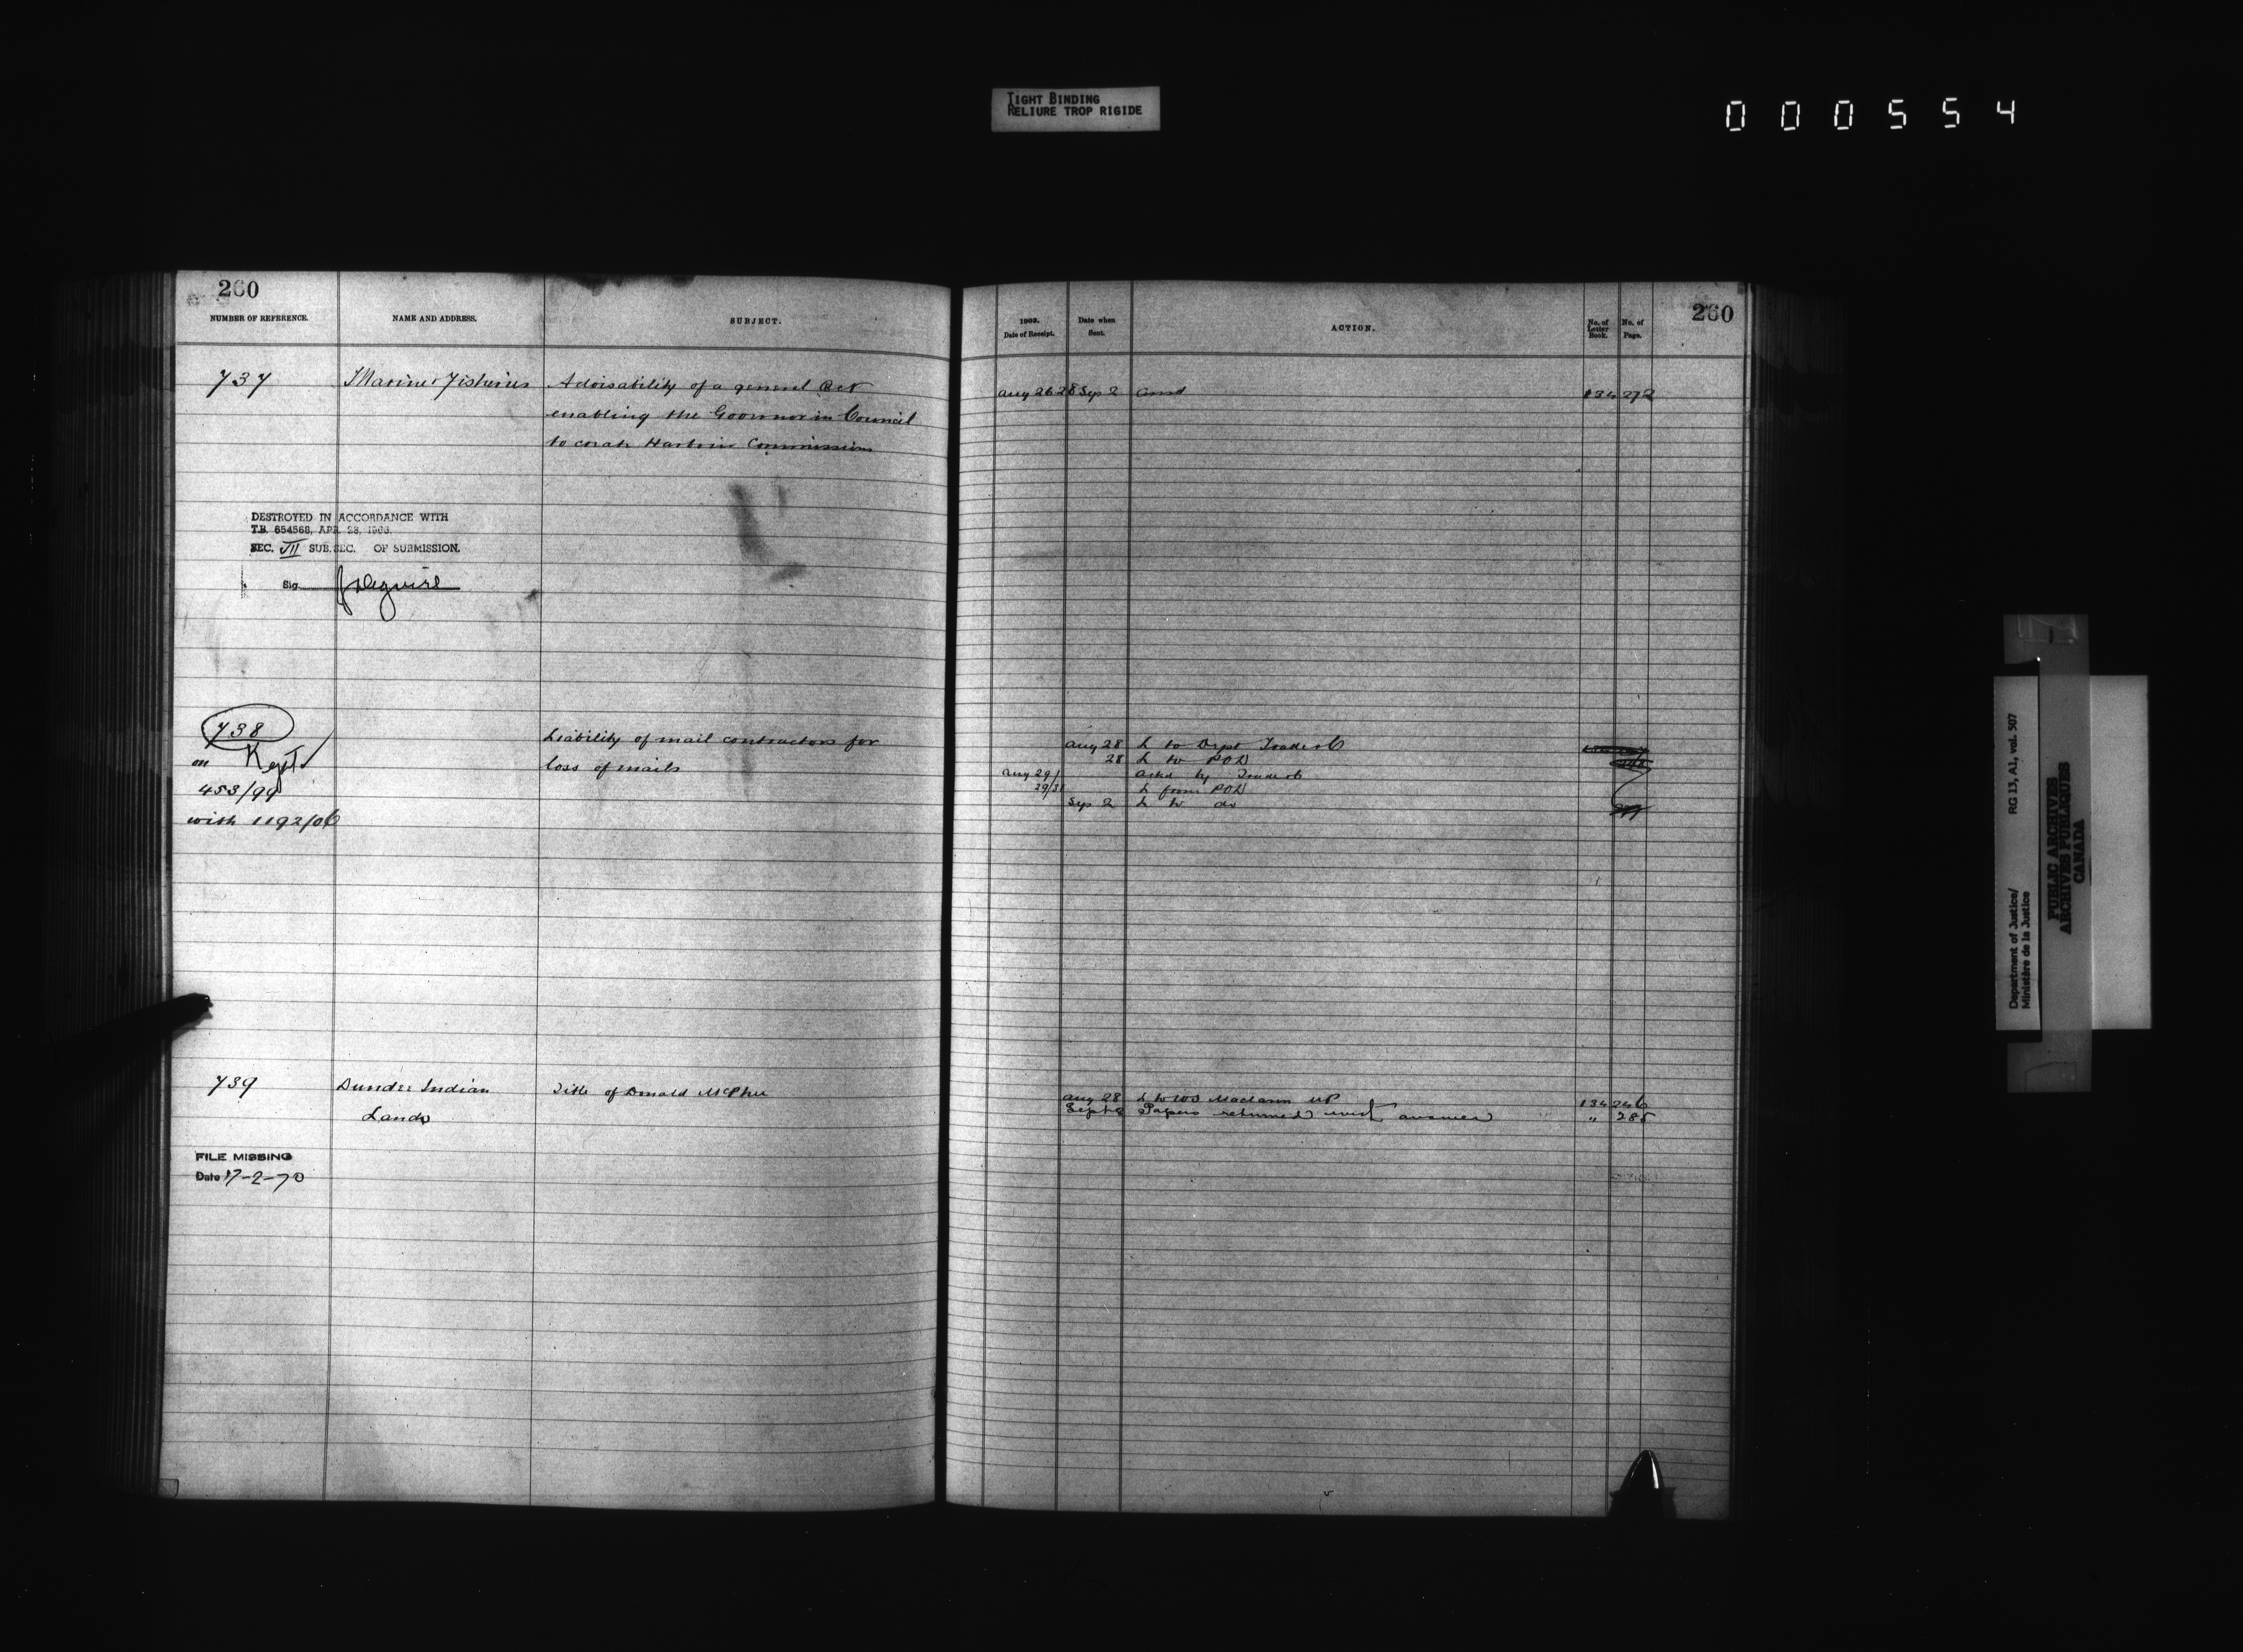 TIGHT BINDING
RELIURE TROP RIGIDE
000554
260
NUMBER OF REFERENCE.
NAME AND ADDRESS.
SUBJECT.
737
Marine & Fisheries
Advisability of a general Act
enabling the Governor in Council
to create Harbour Commissions
DESTROYED IN ACCORDANCE WITH
T.B. 654568, APR. 28, 1966.
SEC. VII SUB. SEC. OF SUBMISSION.
Sig.
738
Liability of mail contractors for
on Kept
loss of mails
453/99
with 1192/06
739
Dundee Indian
Title of Donald McPhee
Lands
FILE MISSING
Date 17-2-70
260
1903.
Date of Receipt.
Date when
Sent.
ACTION.
No. of
Letter
Book.
No. of
Page.
Aug 26 28 Sep 2 134 272
Aug 28 L to Dept Trade & C
28 L to POD
Aug 29/ Ackd by Trade & C
29/31 L from POD
Sep 2 L to do
Aug 28 L to WS Maclaren MP 134 246
Sept 2 Papers returned with answer " 285
Department of Justice/
Ministère de la Justice
RG 13, A1, vol. 507
PUBLIC ARCHIVES
ARCHIVES PUBLIQUES
CANADA